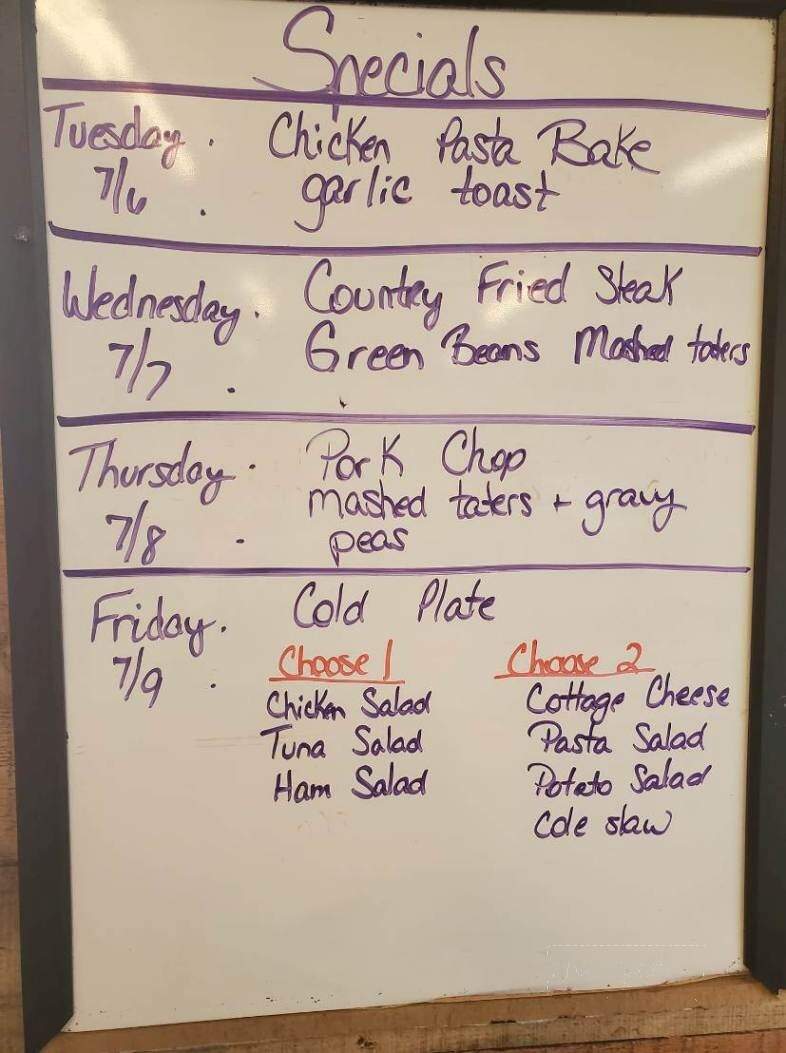 Specials
Tuesday. Chicken Pasta Bake
7/6 . garlic toast
Wednesday. Country Fried Steak
7/7 . Green Beans Mashed taters
Thursday. Pork Chop
7/8 . mashed taters + gravy
peas
Friday. Cold Plate
7/9 . Choose 1 Choose 2
Chicken Salad Cottage Cheese
Tuna Salad Pasta Salad
Ham Salad Potato Salad
Cole slaw